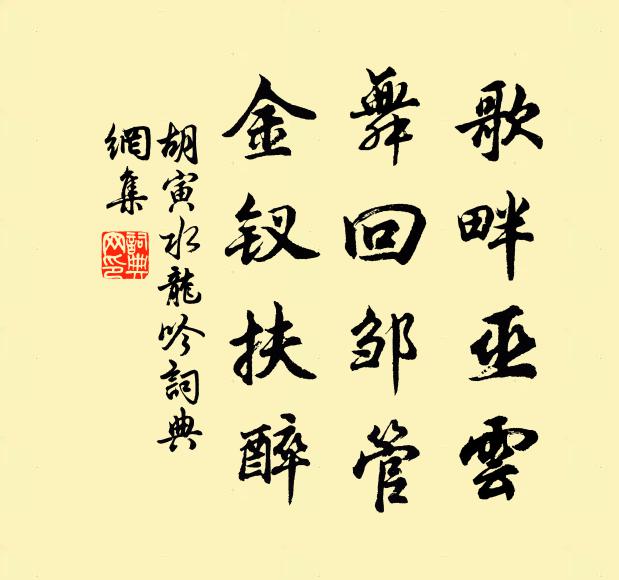 歌畔巫雲
舞回邹管
金钗扶醉
胡寅水龍吟詞典
網集
詞典網印